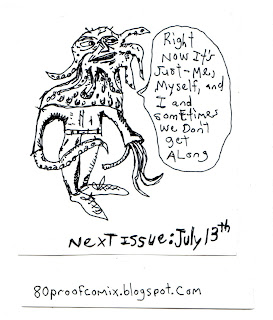 Right
Now It's
Just-Me,
Myself, and
I and
sometimes
we Don't
get
ALong
NexT Issue: July 13th
80proofcomix.blogspot.com